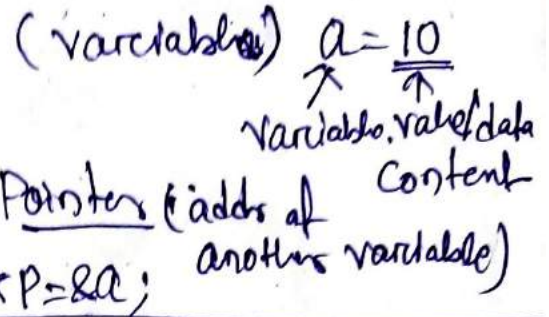 (varciable) a = 10
variable. value/data
content
Pointer (addr of
another variable)
*P = &a;